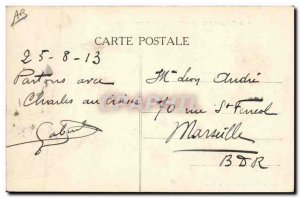 AB
CARTE POSTALE
25-8-13
Partons avec
Charles au
Mr Leon André
70 rue St Ferréol
Marseille
BDR